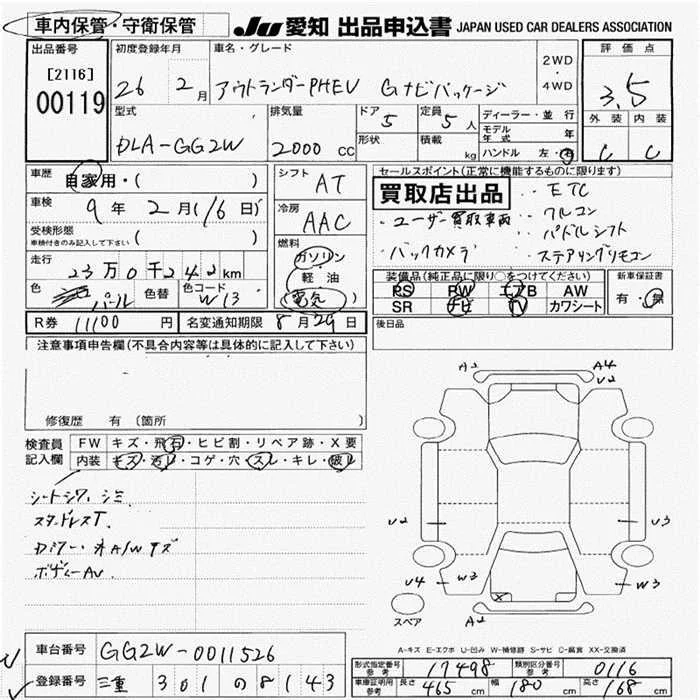 車内保管・守衛保管 JU 愛知 出品申込書 JAPAN USED CAR DEALERS ASSOCIATION
出品番号 初度登録年月 車名・グレード 2WD 評価点
[2116] 26 2月 アウトランダーPHEV Gナビパッケージ ・ 3.5
00119 4WD
型式 排気量 ドア 5 定員 5人 ディーラー・並行 外装 内装
DLA-GG2W 2000cc 形状 積載 kg モデル年式 年 C C
ハンドル 左・右
車歴 自家用・( ) シフト AT セールスポイント(正常に機能するものに限ります)
車検 9年 2月(16日) 冷房 AAC 買取店出品 ・ETC
受検形態 ( ) ・ユーザー買取車両 ・クルコン
車検付きのみ記入して下さい ・パドルシフト
走行 23万0千242km 燃料 ガソリン ・バックカメラ ・ステアリングリモコン
色 パール 色替 色コード W13 軽・油
電気
装備品(純正品に限り○をつけてください) 新車保証書
PS PW エアB AW 有・無
SR ナビ TV カワシート
R券 11100円 名変通知期限 8月29日 後日品
注意事項申告欄(不具合内容等は具体的に記入して下さい)
修復歴 有 (箇所
検査員 FW キズ・飛石・ヒビ割・リペア跡・X要
記入欄 内装 キズ・汚レ・コゲ・穴・スレ・キレ・破レ
シートシワ、シミ
スタッドレスT
ボディーAU
A2 A4
U2
U2 U3
U4 W3 W3
X
スペア A2
A-キズ E-エクボ U-凹み W-補修跡 S-サビ C-腐食 XX-交換済
車台番号 GG2W-0011526
登録番号 三重 301 の 8143
形式指定番号 17498 類別区分番号 0116
車庫証明用参考 長さ 465cm 幅 180cm 高さ 168cm